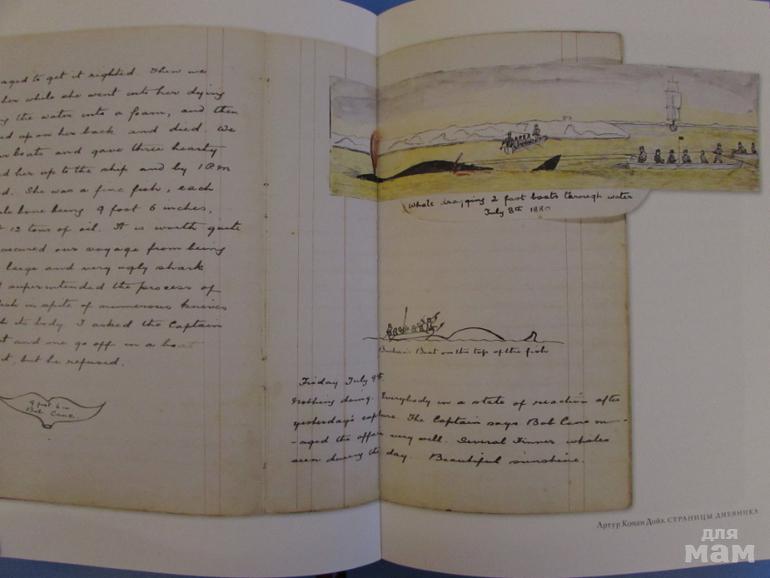 aged to get it righted. Then we
her while she went into her dying
the water into a foam, and then
ed upon her back and died. We
boats and gave three hearty
ed her up to the ship and by 1 am
d. She was a fine fish, each
bone being 9 foot 6 inches,
12 tons of oil. It is worth quite
secured our voyage from being
large and very ugly shark
superintended the process of
in spite of numerous knives
its body. I asked the Captain
t and one go off in a boat
it, but he refused.
9 foot 6 in
Bob Cane
Whale dragging 2 fast boats through water
July 8th 1880
Boat on the top of the fish
Friday July 9th.
Nothing doing. Everybody in a state of reaction after
yesterday's capture. The Captain says Bob Cane man-
-aged the affair very well. Several Finner whales
seen during the day. Beautiful sunshine.
Артур Конан Дойл. СТРАНИЦЫ ДНЕВНИКА
для
мам